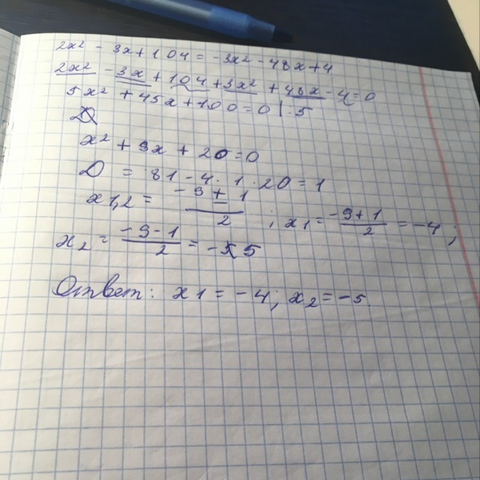 2x² - 3x + 104 = -3x² - 48x + 4
2x² - 3x + 104 + 3x² + 48x - 4 = 0
5x² + 45x + 100 = 0 | : 5
D
x² + 9x + 20 = 0
D = 81 - 4 · 1 · 20 = 1
x1,2 = (-9 ± 1)/2 ; x1 = (-9 + 1)/2 = -4 ;
x2 = (-9 - 1)/2 = -5
Ответ: x1 = -4; x2 = -5